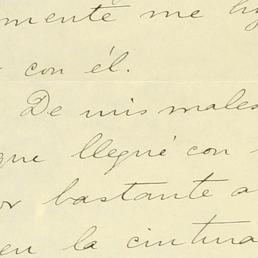 mente me h
con él.
De mis males
que llegué con
or bastante a
en la cintura